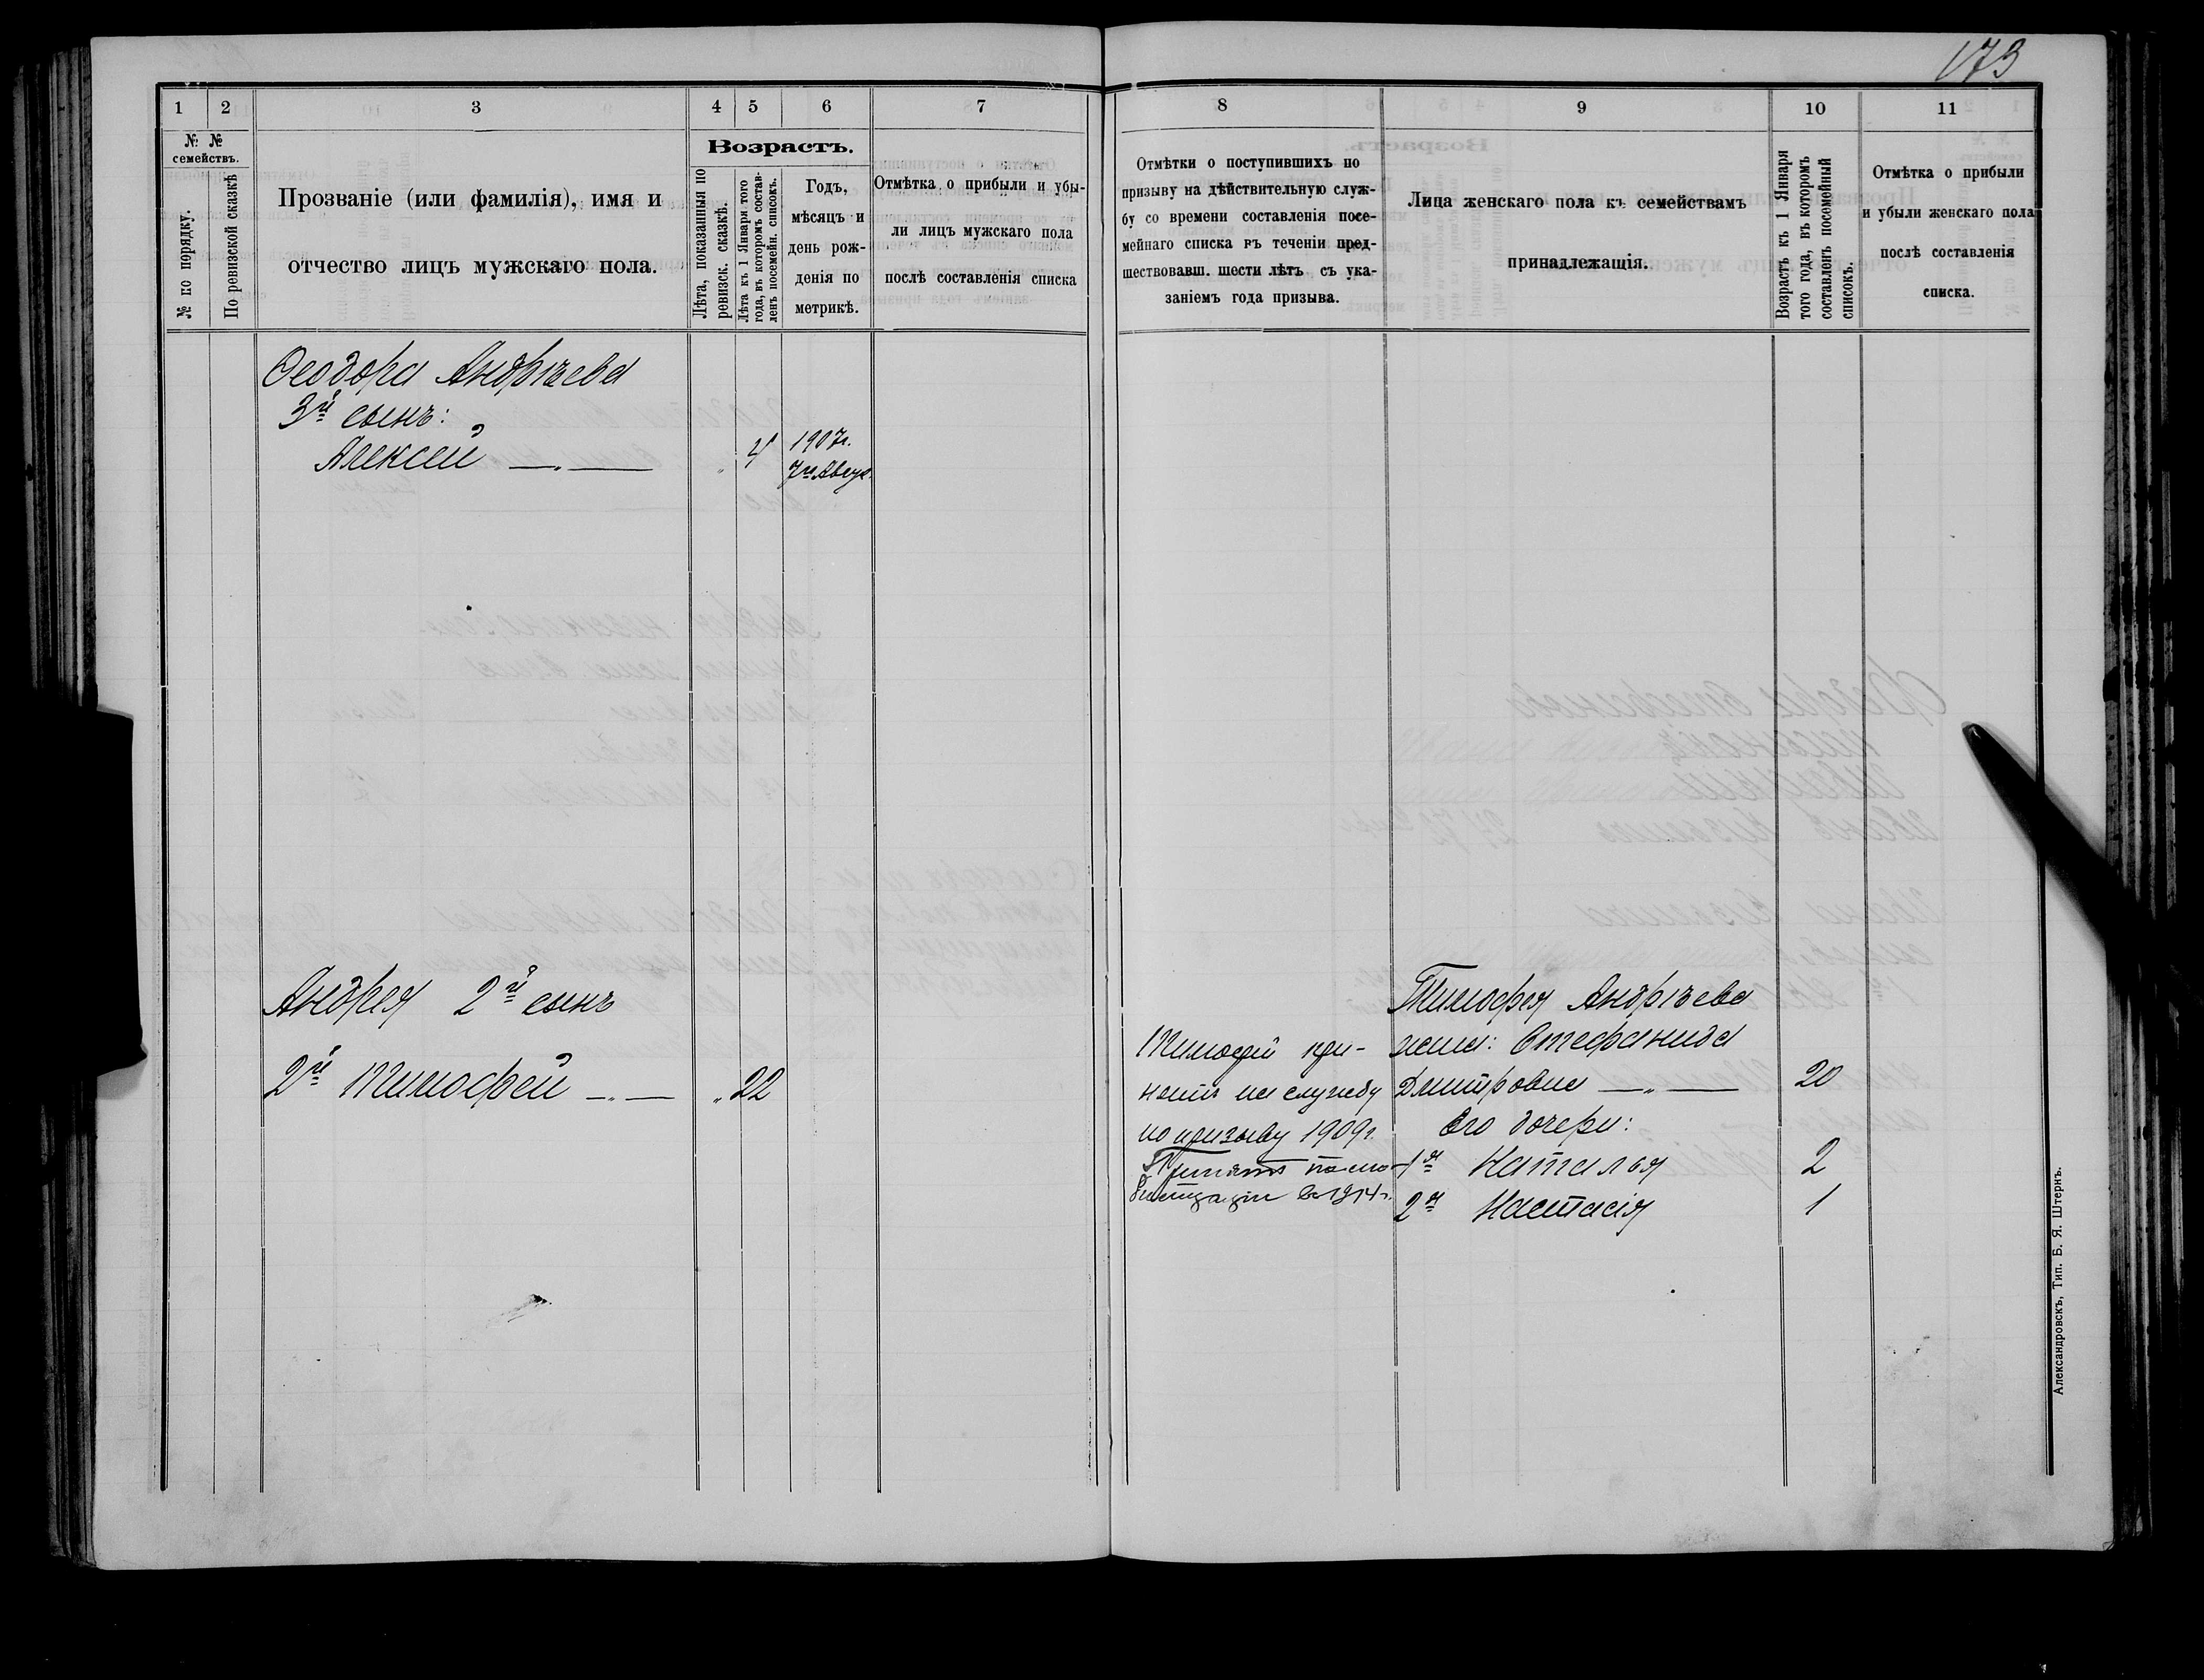 173
1 2 3 4 5 6 7
№ №
семействъ.
№ по порядку.
По ревизской сказкѣ
Прозваніе (или фамилія), имя и
отчество лицъ мужскаго пола.
Возрастъ.
Лѣта, показанныя по
ревизск. сказкѣ.
Лѣта къ 1 Января того
года, въ которомъ состав-
ленъ посемейн. списокъ.
Годъ,
мѣсяцъ и
день рож-
денія по
метрикѣ.
Отмѣтка о прибыли и убы-
ли лицъ мужскаго пола
послѣ составленія списка
Ѳеодора Андрѣева
3й сынъ:
Алексей — „ — „ 4 1907г.
7го Авгус.
Андрея 2й сынъ
2й Тимофей — „ — „ 22
8 9 10 11
Отмѣтки о поступившихъ по
призыву на дѣйствительную служ-
бу со времени составленія посе-
мейнаго списка въ теченіи пред-
шествовавш. шести лѣтъ съ ука-
заніемъ года призыва.
Лица женскаго пола къ семействамъ
принадлежащія.
Возрастъ къ 1 Января
того года, въ которомъ
составленъ посемейный
списокъ.
Отмѣтка о прибыли
и убыли женскаго пола
послѣ составленія
списка.
Тимофей при-
нятъ на службу
по призыву 1909г.
Принятъ по мо-
билизаціи въ 1914г.
Тимофѣя Андрѣева
жена: Стефанида
Дмитровна — „ — 20
Его дочери:
1я Наталья 2
2я Настасія 1
Александровскъ, Тип. Б. Я. Штернъ.